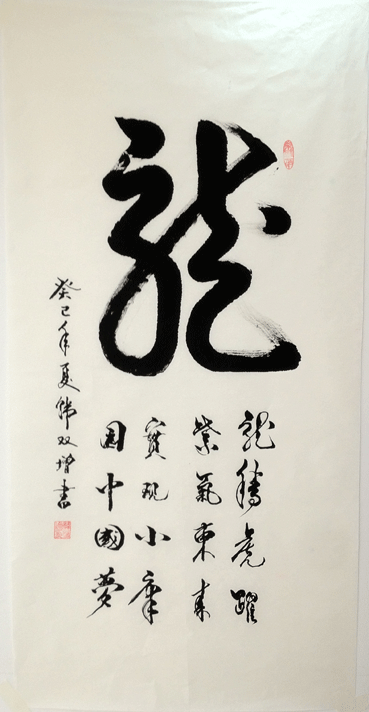 龍
龍騰虎躍
紫氣東來
實現小康
圆中國夢
癸巳年夏韩双增書